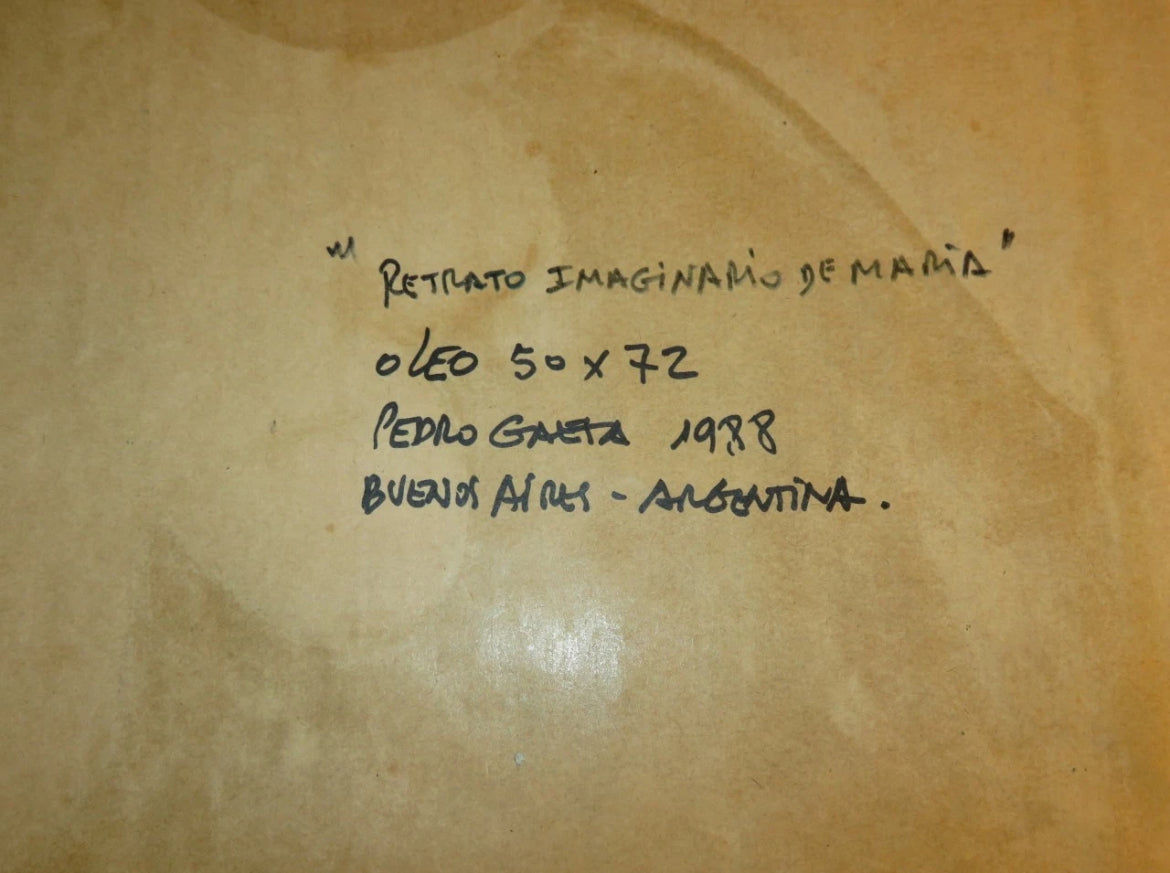 "RETRATO IMAGINARIO DE MARIA"
OLEO 50 x 72
PEDRO GAETA 1988
BUENOS AIRES - ARGENTINA.